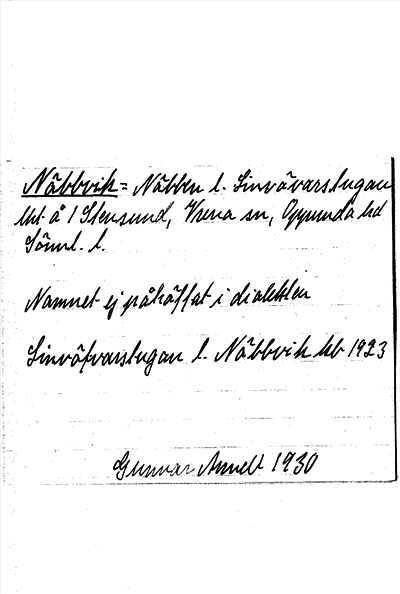 Näbbvik = Näbben l. Linvävarstugan
lht å 1 Stensund, Vrena sn, Oppunda hd
Söml. l.
Namnet ej påträffat i dialekten
Linväfvarstugan l. Näbbvik hb 1923
Gunnar Arnell 1930